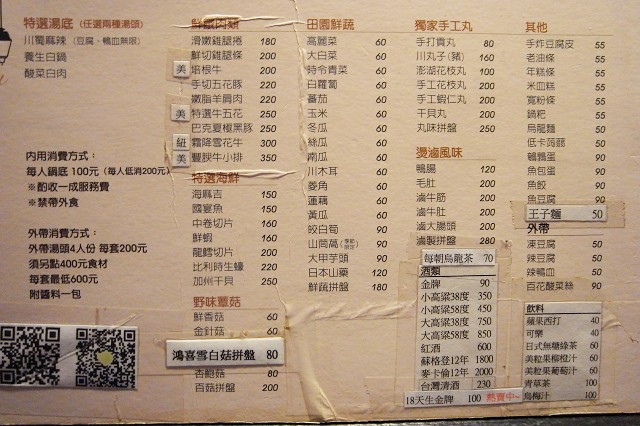 特選湯底 (任選兩種湯頭)
川蜀麻辣 (豆腐、鴨血無限)
養生白鍋
酸菜白肉
內用消費方式：
每人鍋底 100元 (每人低消200元)
※酌收一成服務費
※禁帶外食
外帶消費方式：
外帶湯頭4人份 每套200元
須另點400元食材
每套最低600元
附醬料一包
滑嫩雞腿捲 180
鮮切雞腿條 200
美 培根牛 200
手切五花豚 220
嫩脂羊肩肉 220
美 特選牛五花 250
巴克夏極黑豚 250
紐 霜降雪花牛 300
美 豐腴牛小排 350
特選海鮮
海麻吉 150
國宴魚 150
中卷切片 160
鮮蝦 160
龍鱈切片 160
比利時生蠔
加州干貝 250
野味蕈菇
鮮香菇 60
金針菇
鴻喜雪白菇拼盤 80
杏鮑菇 60
百菇拼盤 200
田園鮮蔬
高麗菜 60
大白菜 60
特令青菜 60
白蘿蔔 60
蕃茄 60
玉米 60
冬瓜 60
絲瓜 60
南瓜 60
川木耳 60
菱角 60
蓮藕 60
黃瓜 60
皎白筍 90
山茼萵 90
大甲芋頭 90
日本山藥 120
鮮蔬拼盤 180
獨家手工丸
手打貢丸 80
川丸子(豬) 160
澎湖花枝丸 160
手工花枝丸 200
手工蝦仁丸 200
丸味拼盤 280
燙滷風味
鴨腸 120
毛肚 200
滷牛筋 200
滷牛肚 200
滷大腸頭 200
滷製拼盤 280
每朝烏龍茶 70
酒類
金牌 90
小高粱38度 350
小高粱58度 450
大高粱38度 750
大高粱58度 850
紅酒 600
蘇格登12年 1800
麥卡倫12年 2000
台灣清酒 230
18天生金牌 100 熱賣中~
其他
手炸豆腐皮 55
老油條 55
年糕條 55
米血糕 55
寬粉條 55
鍋粑 55
烏龍麵 50
低卡蒟蒻 50
鵪鶉蛋 90
魚包蛋 90
魚餃 90
魚豆腐 90
王子麵 50
外帶
凍豆腐 50
辣豆腐 50
辣鴨血 50
百花酸菜絲 50
飲料
蘋果西打 40
可樂 40
日式無糖綠茶 60
美粒果柳橙汁 60
美粒果葡萄汁 60
青草茶 100
烏梅汁 100